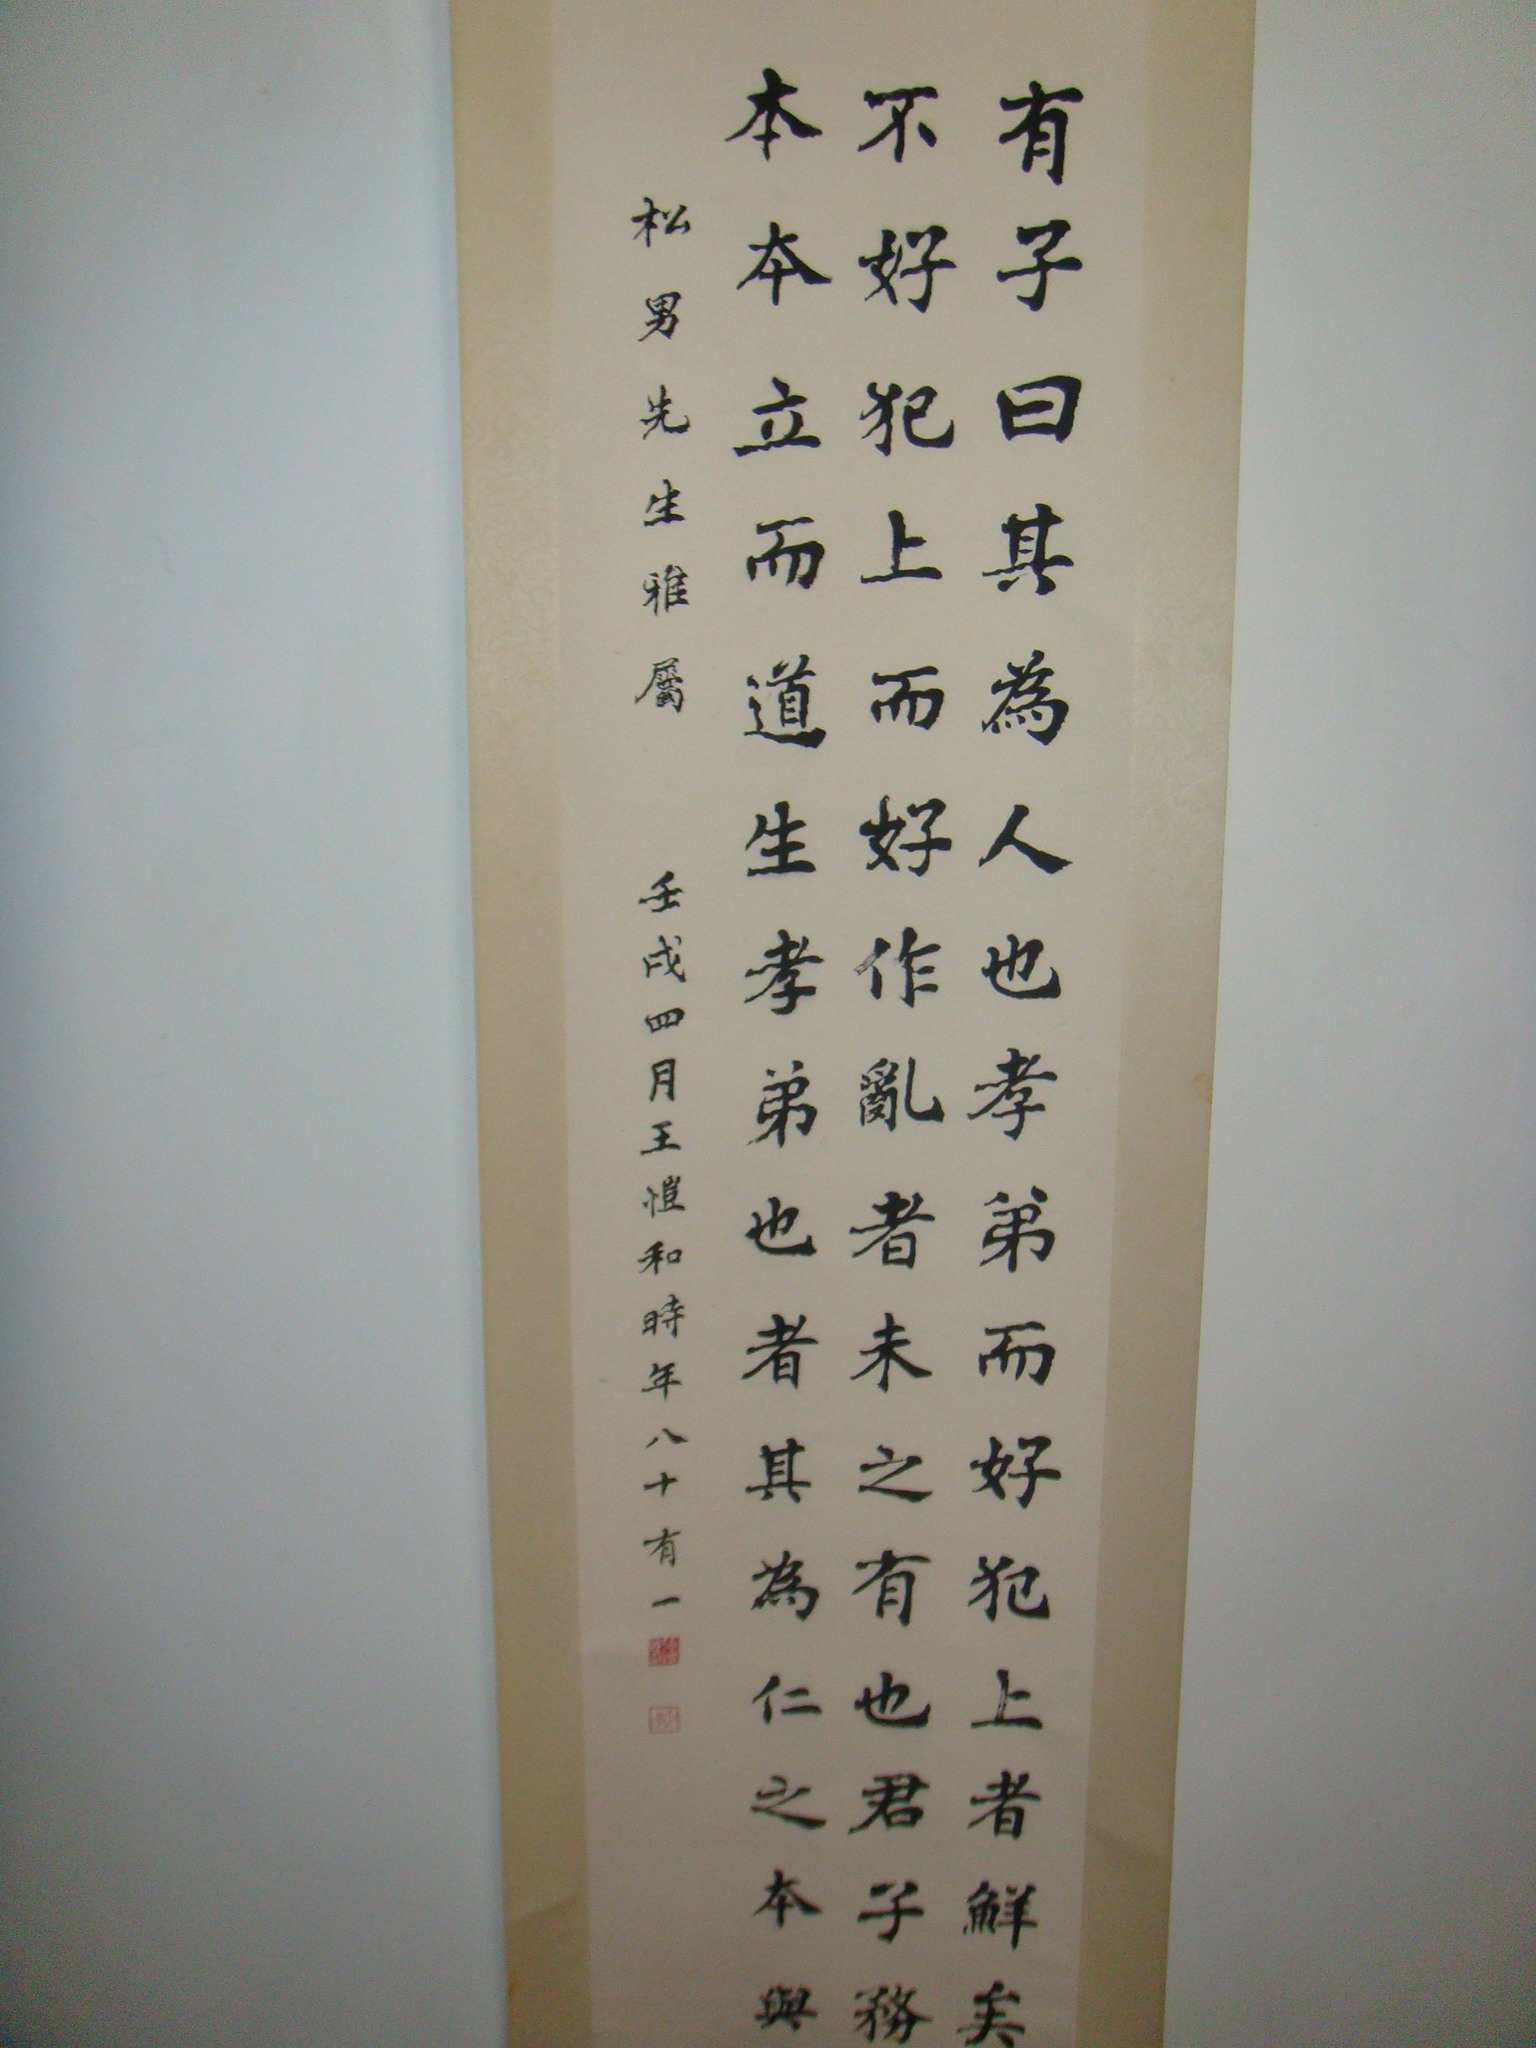 有子曰其為人也孝弟而好犯上者鮮矣
不好犯上而好作亂者未之有也君子務
本本立而道生孝弟也者其為仁之本與
松男先生雅屬 壬戌四月王愷和時年八十有一